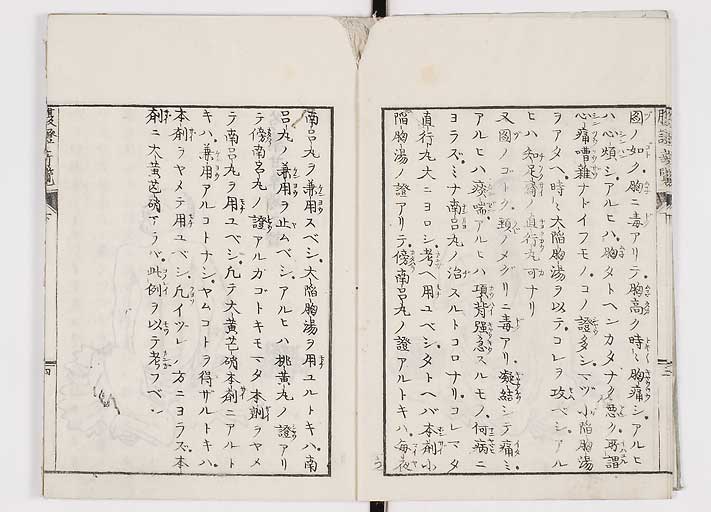 図ノ如ク胸ニ毒アリテ胸高ク時々胸痛シ。アルヒ
ハ心煩シ。アルヒハ胸タトヘンカタナク悪ク所謂
心痛嘈雜ナドイフモノコノ證多シ。マヅ小陥胸湯
ヲアタヘ時々大陥胸湯ヲ以テコレヲ攻ベシ。アル
ヒハ知足齋ノ直行丸可ナリ
又圖ノゴトク頚ノメグリニ毒アリ凝結シテ痛ミ
アルヒハ痰喘アルヒハ項背强急スルモノ何病ニ
ヨラズミナ南呂丸ノ治スルトコロナリ。コレマタ
直行丸大ニヨロシ考ヘ用ユベシ。タトヘバ本剤小
陥胸湯ノ證アリテ傍南呂丸ノ證アルトキハ毎夜
南呂丸ヲ兼用スベシ。大陥胸湯ヲ用ユルトキハ南
呂丸ノ兼用ヲ止ムベシ。アルヒハ桃黄丸ノ證アリ
テ傍南呂丸ノ證アルガゴトキモマタ本剤ヲヤメ
テ南呂丸ヲ用ユベシ凡テ大黄芒硝本剤ニアルト
キハ兼用アルコトナシ。ヤムコトヲ得ザルトキハ
本剤ヲヤメテ用ユベシ。凡イヅレノ方ニヨラズ本
剤ニ大黄芒硝アラバ此例ヲ以テ考フベシ